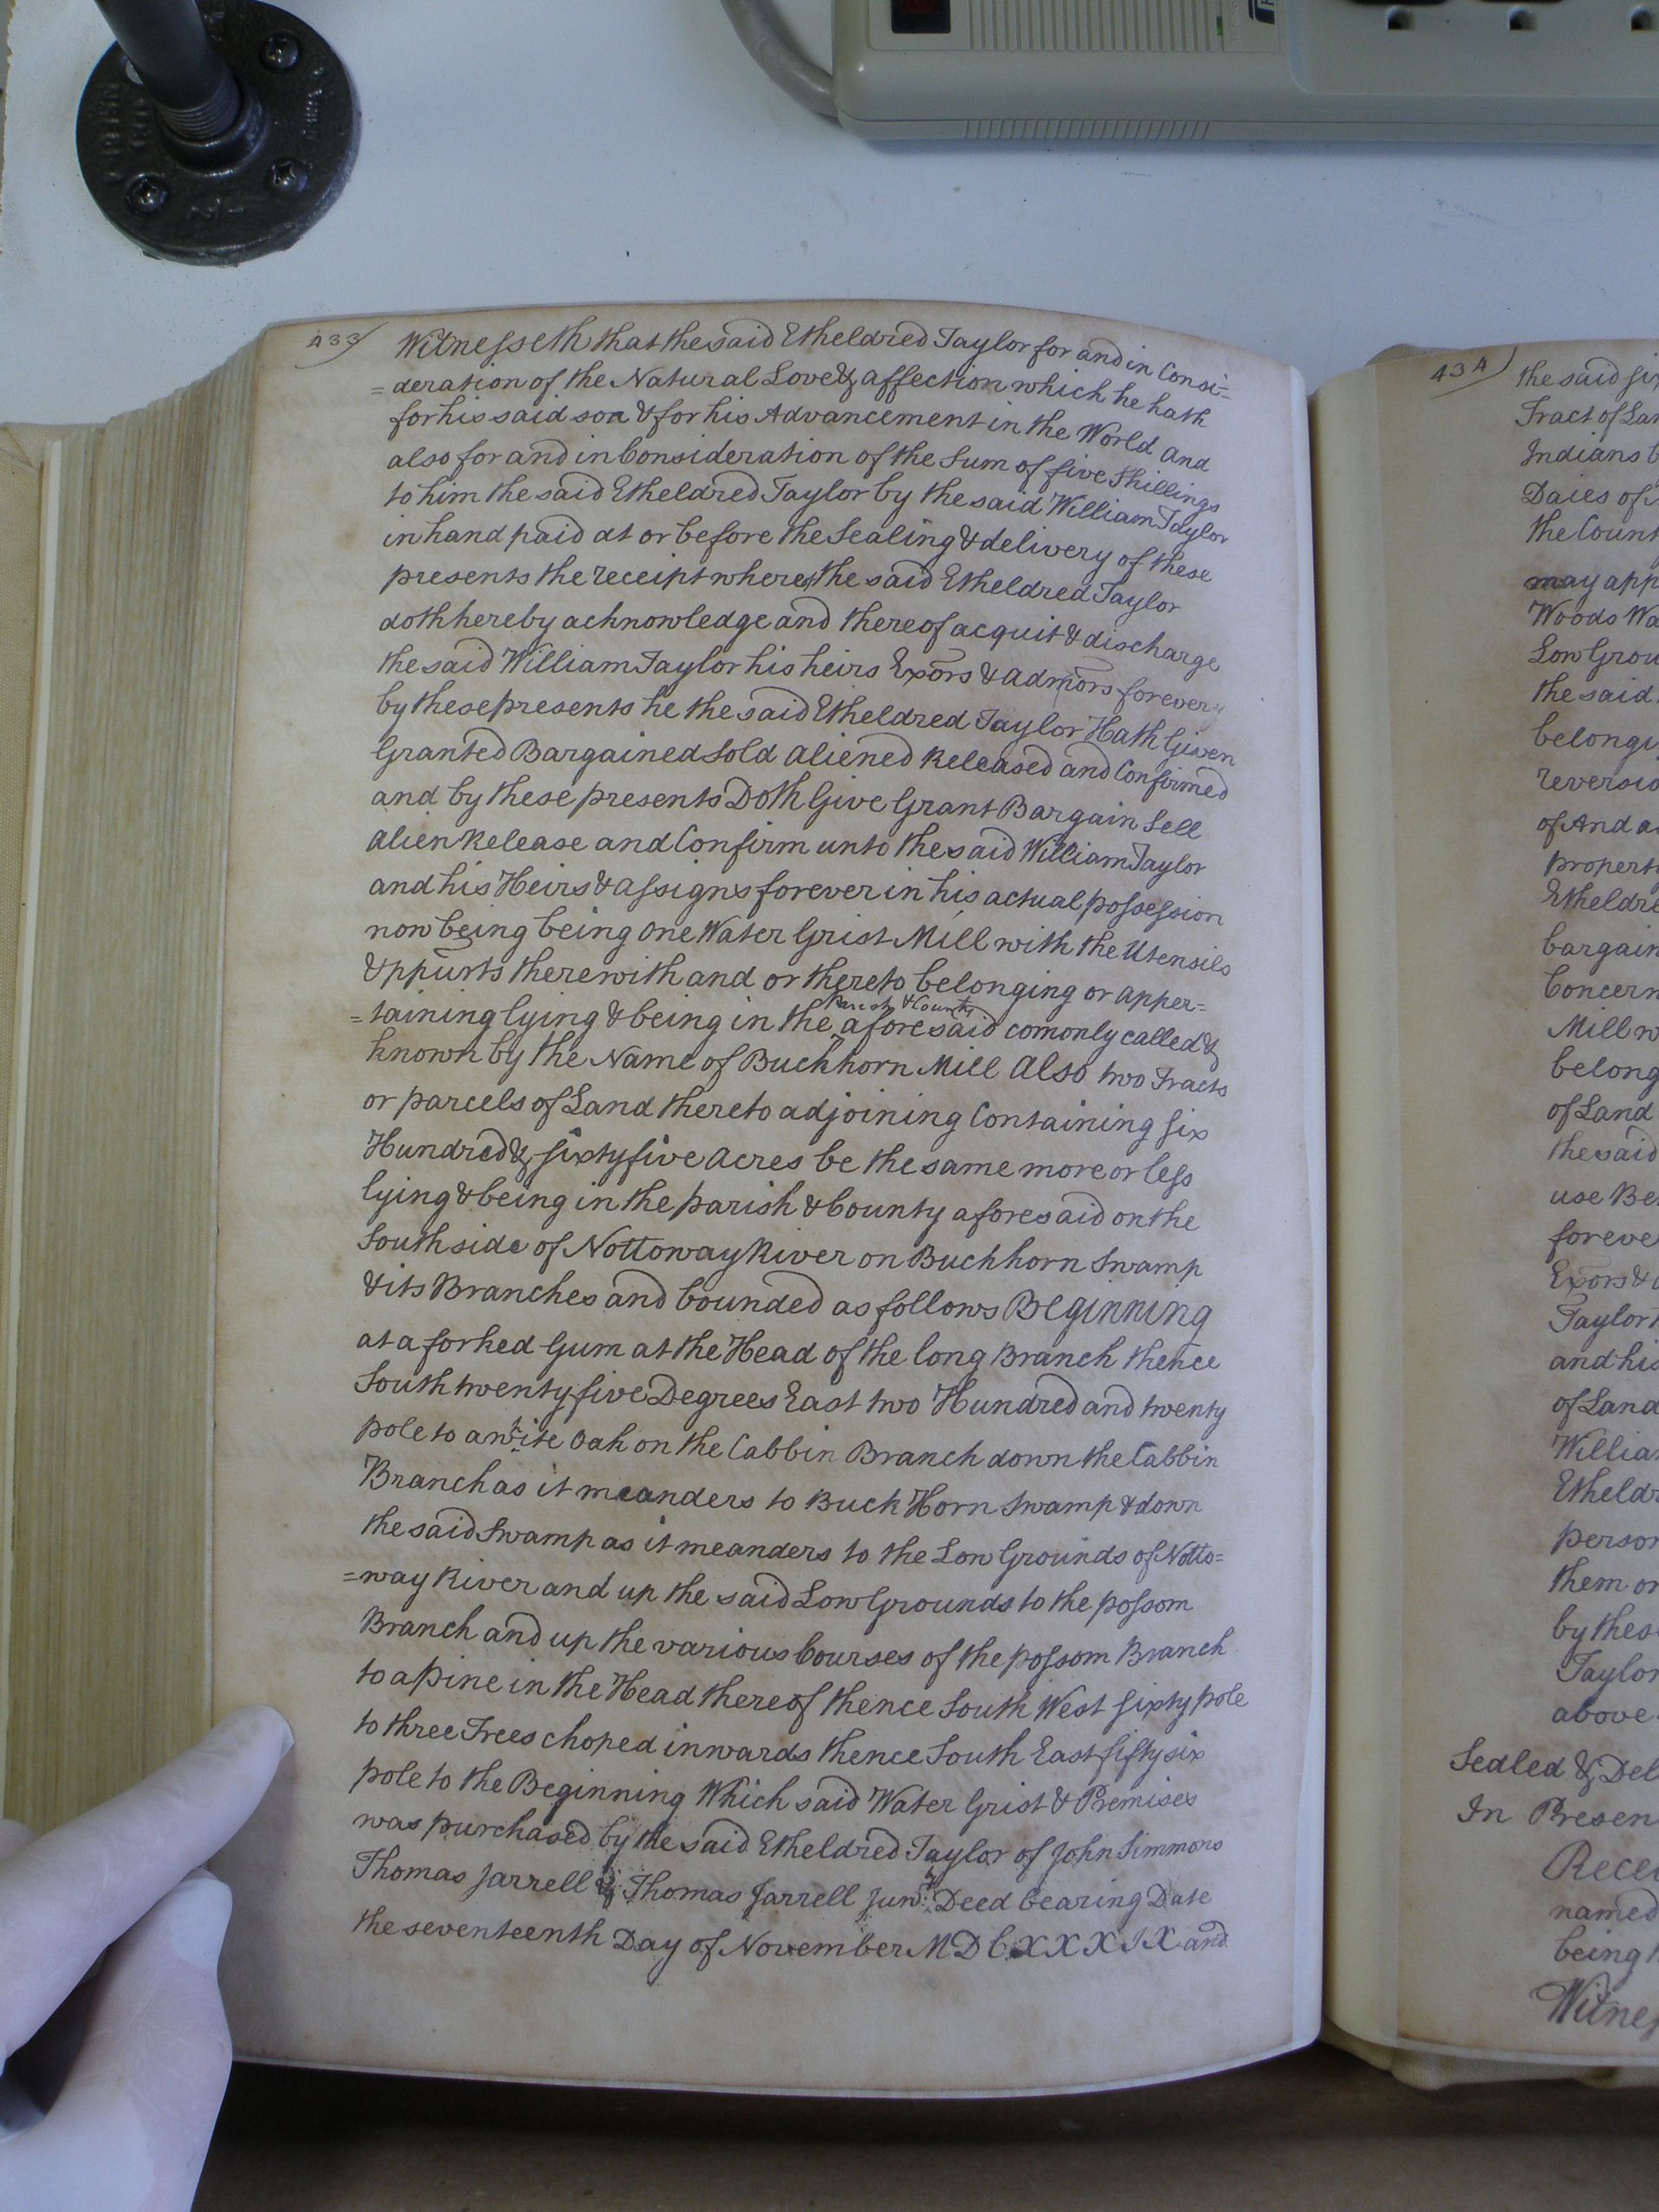 433) Witnesseth that the said Etheldred Taylor for and in Consi=
=deration of the Natural Love & affection which he hath
for his said son & for his Advancement in the World and
also for and in Consideration of the Sum of five Shillings
to him the said Etheldred Taylor by the said William Taylor
in hand paid at or before the Sealing & delivery of these
presents the receipt where the said Etheldred Taylor
doth hereby acknowledge and thereof acquit & discharge
the said William Taylor his heirs Exors & admors forever
by these presents he the said Etheldred Taylor Hath Given
Granted Bargained Sold aliened Released and Confirmed
and by these presents Doth Give Grant Bargain Sell
alien Release and Confirm unto the said William Taylor
and his Heirs & assigns forever in his actual possession
now being being one Water Grist Mill with the Utensils
& ppurts therewith and or thereto belonging or apper=
=taining lying & being in the Parish & County aforesaid comonly called &
known by the Name of Buckhorn Mill Also two Tracts
or parcels of Land thereto adjoining Containing six
Hundred & sixty five acres be the same more or less
lying & being in the parish & County aforesaid on the
South side of Nottoway River on Buckhorn Swamp
& its Branches and bounded as follows Beginning
at a forked Gum at the Head of the long Branch thence
South twenty five Degrees East two Hundred and twenty
pole to a white Oak on the Cabbin Branch down the Cabbin
Branch as it meanders to Buck Horn Swamp & down
the said Swamp as it meanders to the Low Grounds of Notto=
=way River and up the said Low Grounds to the possom
Branch and up the various Courses of the possom Branch
to a pine in the Head thereof thence South West sixty pole
to three Trees choped inwards thence South East fifty six
pole to the Beginning Which said Water Grist & Premises
was purchased by the said Etheldred Taylor of John Simmons
Thomas Jarrell & Thomas Jarrell Junr. Deed bearing Date
the seventeenth Day of November MDCXXXIX and
434) the said six
Tract of Lan
Indians b
Daies of
the Count
may app
Woods Wa
Low Grou
the said
belongi
reversio
of And a
propert
Etheldre
bargain
Concern
Mill w
belong
of Land
the said
use Be
foreve
Exors &
Taylor
and his
of Land
Willia
Etheldr
person
them or
by thes
Taylor
above
Sealed & Del
In Presen
Recei
named
being
Witnes